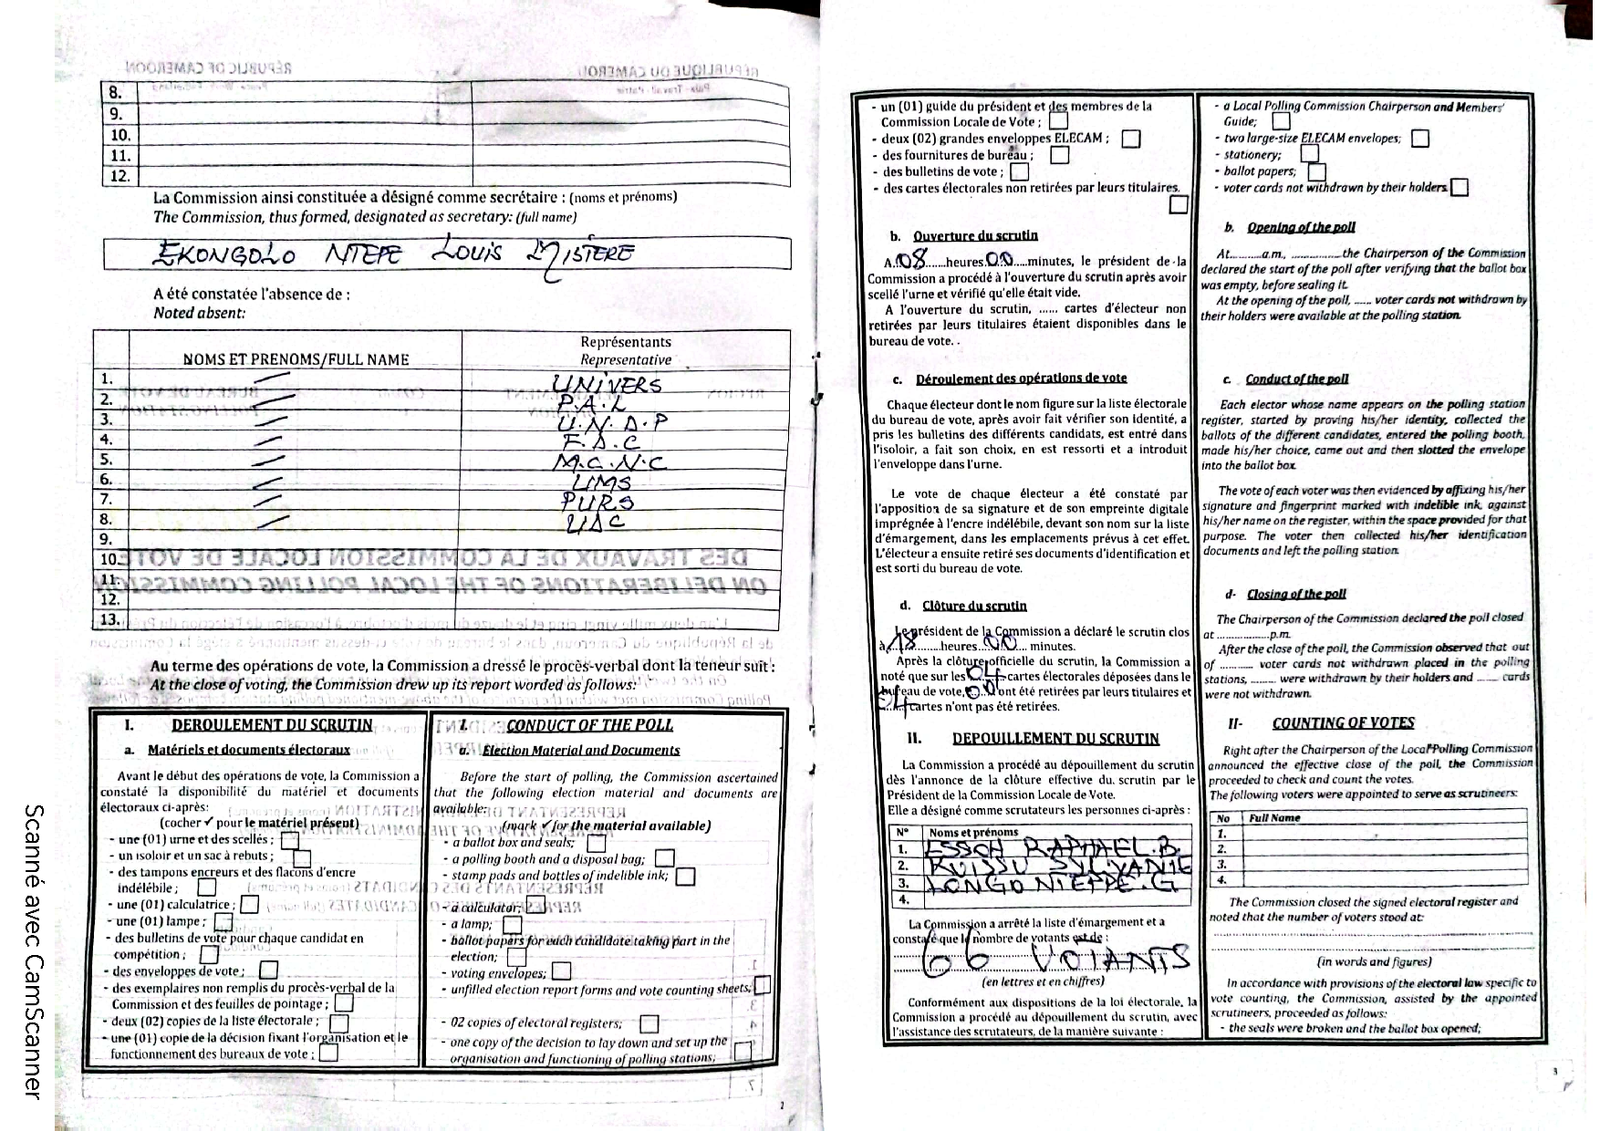 8.
9.
10.
11.
12.
La Commission ainsi constituée a désigné comme secrétaire : (noms et prénoms)
The Commission, thus formed, designated as secretary: (full name)
EKONGOLO NTEPE LOUIS
A été constatée l'absence de :
Noted absent:
NOMS ET PRENOMS/FULL NAME
Représentants
Representative
1. UNIVERS
2. P.A.L
3. U.N.D.P
4. F.D.C
5. M.C.N.C
6. UMS
7. PURS
8. UDC
9.
10.
11.
12.
13.
Au terme des opérations de vote, la Commission a dressé le procès-verbal dont la teneur suit :
At the close of voting, the Commission drew up its report worded as follows:
I. DEROULEMENT DU SCRUTIN
a. Matériels et documents électoraux
Avant le début des opérations de vote, la Commission a
constaté la disponibilité du matériel et documents
électoraux ci-après:
(cocher ✓ pour le matériel présent)
- une (01) urne et des scellés ;
- un isoloir et un sac à rebuts ;
- des tampons encreurs et des flacons d'encre
indélébile ;
- une (01) calculatrice ;
- une (01) lampe ;
- des bulletins de vote pour chaque candidat en
compétition ;
- des enveloppes de vote ;
- des exemplaires non remplis du procès-verbal de la
Commission et des feuilles de pointage ;
- deux (02) copies de la liste électorale ;
- une (01) copie de la décision fixant l'organisation et le
fonctionnement des bureaux de vote ;
I. CONDUCT OF THE POLL
a. Election Material and Documents
Before the start of polling, the Commission ascertained
that the following election material and documents are
available:
(mark ✓ for the material available)
- a ballot box and seals;
- a polling booth and a disposal bag;
- stamp pads and bottles of indelible ink;
- a calculator;
- a lamp;
- ballot papers for each candidate taking part in the
election;
- voting envelopes;
- unfilled election report forms and vote counting sheets;
- 02 copies of electoral registers;
- one copy of the decision to lay down and set up the
organisation and functioning of polling stations;
2
- un (01) guide du président et des membres de la
Commission Locale de Vote ;
- deux (02) grandes enveloppes ELECAM ;
- des fournitures de bureau ;
- des bulletins de vote ;
- des cartes électorales non retirées par leurs titulaires.
b. Ouverture du scrutin
A 08 heures 00 minutes, le président de la
Commission a procédé à l'ouverture du scrutin après avoir
scellé l'urne et vérifié qu'elle était vide.
A l'ouverture du scrutin, ...... cartes d'électeur non
retirées par leurs titulaires étaient disponibles dans le
bureau de vote. .
c. Déroulement des opérations de vote
Chaque électeur dont le nom figure sur la liste électorale
du bureau de vote, après avoir fait vérifier son identité, a
pris les bulletins des différents candidats, est entré dans
l'isoloir, a fait son choix, en est ressorti et a introduit
l'enveloppe dans l'urne.
Le vote de chaque électeur a été constaté par
l'apposition de sa signature et de son empreinte digitale
imprégnée à l'encre indélébile, devant son nom sur la liste
d'émargement, dans les emplacements prévus à cet effet.
L'électeur a ensuite retiré ses documents d'identification et
est sorti du bureau de vote.
d. Clôture du scrutin
Le président de la Commission a déclaré le scrutin clos
à 18 heures 00 minutes.
Après la clôture officielle du scrutin, la Commission a
noté que sur les 04 cartes électorales déposées dans le
bureau de vote, 00 ont été retirées par leurs titulaires et
04 cartes n'ont pas été retirées.
II. DEPOUILLEMENT DU SCRUTIN
La Commission a procédé au dépouillement du scrutin
dès l'annonce de la clôture effective du scrutin par le
Président de la Commission Locale de Vote.
Elle a désigné comme scrutateurs les personnes ci-après :
N° Noms et prénoms
1. ESSOH RAPHAEL.B
2. KUISSU SYLVANIE
3. LONGO NTEPPE.G
4.
La Commission a arrêté la liste d'émargement et a
constaté que le nombre de votants est de :
66 VOTANTS
(en lettres et en chiffres)
Conformément aux dispositions de la loi électorale, la
Commission a procédé au dépouillement du scrutin, avec
l'assistance des scrutateurs, de la manière suivante :
- a Local Polling Commission Chairperson and Members'
Guide;
- two large-size ELECAM envelopes;
- stationery;
- ballot papers;
- voter cards not withdrawn by their holders
b. Opening of the poll
At..........a.m., ...............the Chairperson of the Commission
declared the start of the poll after verifying that the ballot box
was empty, before sealing it.
At the opening of the poll, ...... voter cards not withdrawn by
their holders were available at the polling station.
c. Conduct of the poll
Each elector whose name appears on the polling station
register, started by proving his/her identity, collected the
ballots of the different candidates, entered the polling booth,
made his/her choice, came out and then slotted the envelope
into the ballot box.
The vote of each voter was then evidenced by affixing his/her
signature and fingerprint marked with indelible ink, against
his/her name on the register, within the space provided for that
purpose. The voter then collected his/her identification
documents and left the polling station.
d- Closing of the poll
The Chairperson of the Commission declared the poll closed
at ................p.m.
After the close of the poll, the Commission observed that out
of .......... voter cards not withdrawn placed in the polling
stations, ........ were withdrawn by their holders and ...... cards
were not withdrawn.
II- COUNTING OF VOTES
Right after the Chairperson of the Local Polling Commission
announced the effective close of the poll, the Commission
proceeded to check and count the votes.
The following voters were appointed to serve as scrutineers:
No Full Name
1.
2.
3.
4.
The Commission closed the signed electoral register and
noted that the number of voters stood at:
(in words and figures)
In accordance with provisions of the electoral law specific to
vote counting, the Commission, assisted by the appointed
scrutineers, proceeded as follows:
- the seals were broken and the ballot box opened;
3
Scanné avec CamScanner